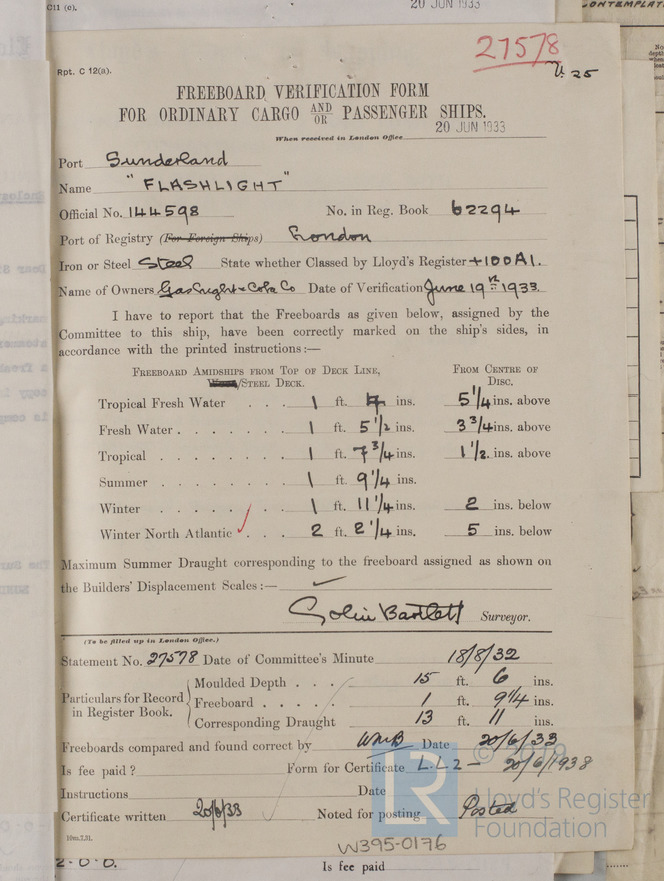 C11 (c).
20 JUN 1933
CONTEMPLAT
27578
Rpt. C 12(a).
25
FREEBOARD VERIFICATION FORM
FOR ORDINARY CARGO AND/OR PASSENGER SHIPS.
When received in London Office 20 JUN 1933
Port Sunderland
Name "FLASHLIGHT"
Official No. 144598 No. in Reg. Book 62294
Port of Registry (For Foreign Ships) London
Iron or Steel Steel State whether Classed by Lloyd's Register +100A1.
Name of Owners Gas Light & Coke Co Date of Verification June 19th 1933
I have to report that the Freeboards as given below, assigned by the
Committee to this ship, have been correctly marked on the ship's sides, in
accordance with the printed instructions:—
FREEBOARD AMIDSHIPS FROM TOP OF DECK LINE, FROM CENTRE OF
/STEEL DECK. DISC.
Tropical Fresh Water . . . 1 ft. 4 ins. 5 1/4 ins. above
Fresh Water . . . . . . . 1 ft. 5 1/2 ins. 3 3/4 ins. above
Tropical . . . . . . . . 1 ft. 7 3/4 ins. 1 1/2 ins. above
Summer . . . . . . . . 1 ft. 9 1/4 ins.
Winter . . . . . . . . 1 ft. 11 1/4 ins. 2 ins. below
Winter North Atlantic . . . 2 ft. 2 1/4 ins. 5 ins. below
Maximum Summer Draught corresponding to the freeboard assigned as shown on
the Builders' Displacement Scales:— ✓
Colin Bartlett Surveyor.
(To be filled up in London Office.)
Statement No. 27578 Date of Committee's Minute 18/8/32
Particulars for Record in Register Book.
Moulded Depth . . . 15 ft. 6 ins.
Freeboard . . . . . 1 ft. 9 1/4 ins.
Corresponding Draught 13 ft. 11 ins.
Freeboards compared and found correct by WMB Date 20/6/33
Is fee paid? Form for Certificate L.L.2 — 20/6/1938
Instructions Date
Certificate written 20/6/33 Noted for posting Posted
10m.7.31.
© 2019
LR
Lloyd's Register
Foundation
W395-0176
2.0.0.
Is fee paid